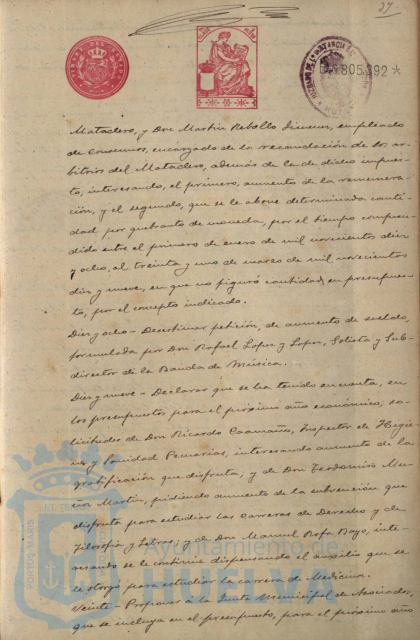 27
805.892 *
Matadero, y Don Martín Rebollo Jimenez, empleado
de Consumos, encargado de la recaudación de los ar-
bitrios del Matadero, además de la de dicho impues-
to, interesando, el primero, aumento de la remunera-
ción, y el segundo, que se le abone determinada canti-
dad por quebranto de moneda, por el tiempo compren-
dido entre el primero de enero de mil novecientos diez
y ocho, al treinta y uno de marzo de mil novecientos
diez y nueve, en que no figuró cantidad, en presupues-
to, por el concepto indicado.
Diez y ocho - Desestimar petición, de aumento de sueldo,
formulada por Don Rafael López y López, Solista y Sub-
director de la Banda de Música.
Diez y nueve - Declarar que se ha tenido en cuenta, en
los presupuestos para el próximo año económico, so-
licitudes de Don Ricardo Caamaño, Inspector de Higie-
ne y Sanidad Pecuarias, interesando aumento de la
gratificación que disfruta; y de Don Teodomiro Mu-
ñoz Martín, pidiendo aumento de la subvención que
disfruta para estudiar las Carreras de Derecho y de
Filosofía y Letras; y de Don Manuel Rofa Bayo, inte-
resando se le continúe dispensando el auxilio que se
le otorgó para estudiar la carrera de Medicina.
Veinte - Proponer a la Junta Municipal de Asociados,
que se incluya en el presupuesto, para el próximo año
Ayuntamiento de
HUELVA
PORTUS MARIS